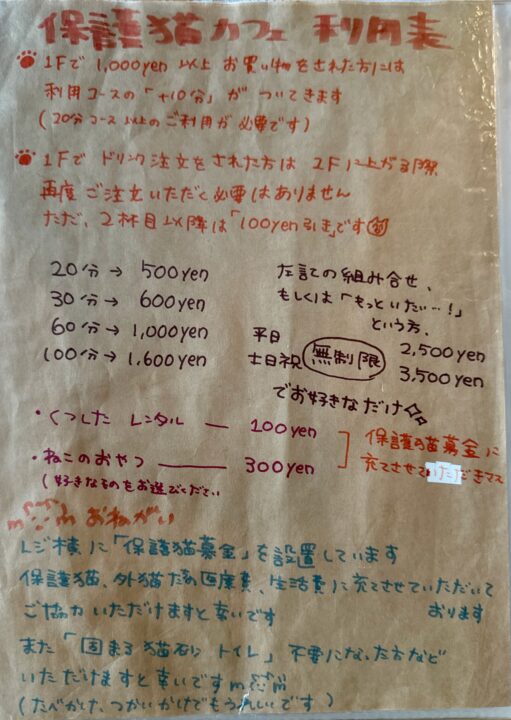 保護猫カフェ 利用表
1Fで 1,000yen 以上 お買い物をされた方には
利用コースの「+10分」が ついてきます
(20分コース以上のご利用が必要です)
1Fで ドリンク注文をされた方は 2Fに上がる際
再度ご注文いただく必要はありません
ただ、2杯目以降は「100yen引き」です
20分→ 500yen
30分→ 600yen
60分→ 1,000yen
100分→ 1,600yen
左記の組み合せ、
もしくは「もっといたい…!」
という方、
平日
土日祝
無制限
2,500yen
3,500yen
でお好きなだけ
・くつした レンタル ― 100yen
・ねこのおやつ ― 300yen
(好きなものをお選びください
保護猫募金に
充てさせていただきマス
おねがい
レジ横に「保護猫募金」を設置しています
保護猫、外猫たちの医療費、生活費に充てさせていただいて
おります
ご協力いただけますと幸いです
また「固まる猫砂 トイレ」不要になった方など
いただけますと幸いです m m
(たべかけ、つかいかけでもうれしいです)